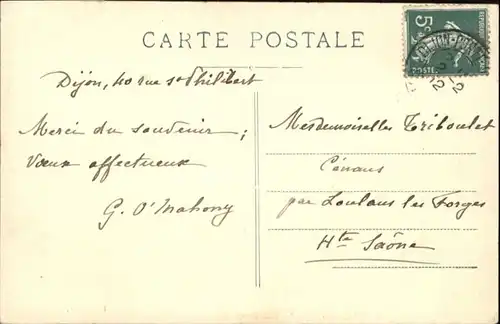 CARTE POSTALE
5c
POSTE
Dijon, 40 rue St Philibert
Merci du souvenir;
Vœux affectueux
G. O'Mahony
Mesdemoiselles Triboulet
Cénans
par Loulans les Forges
Hte Saône